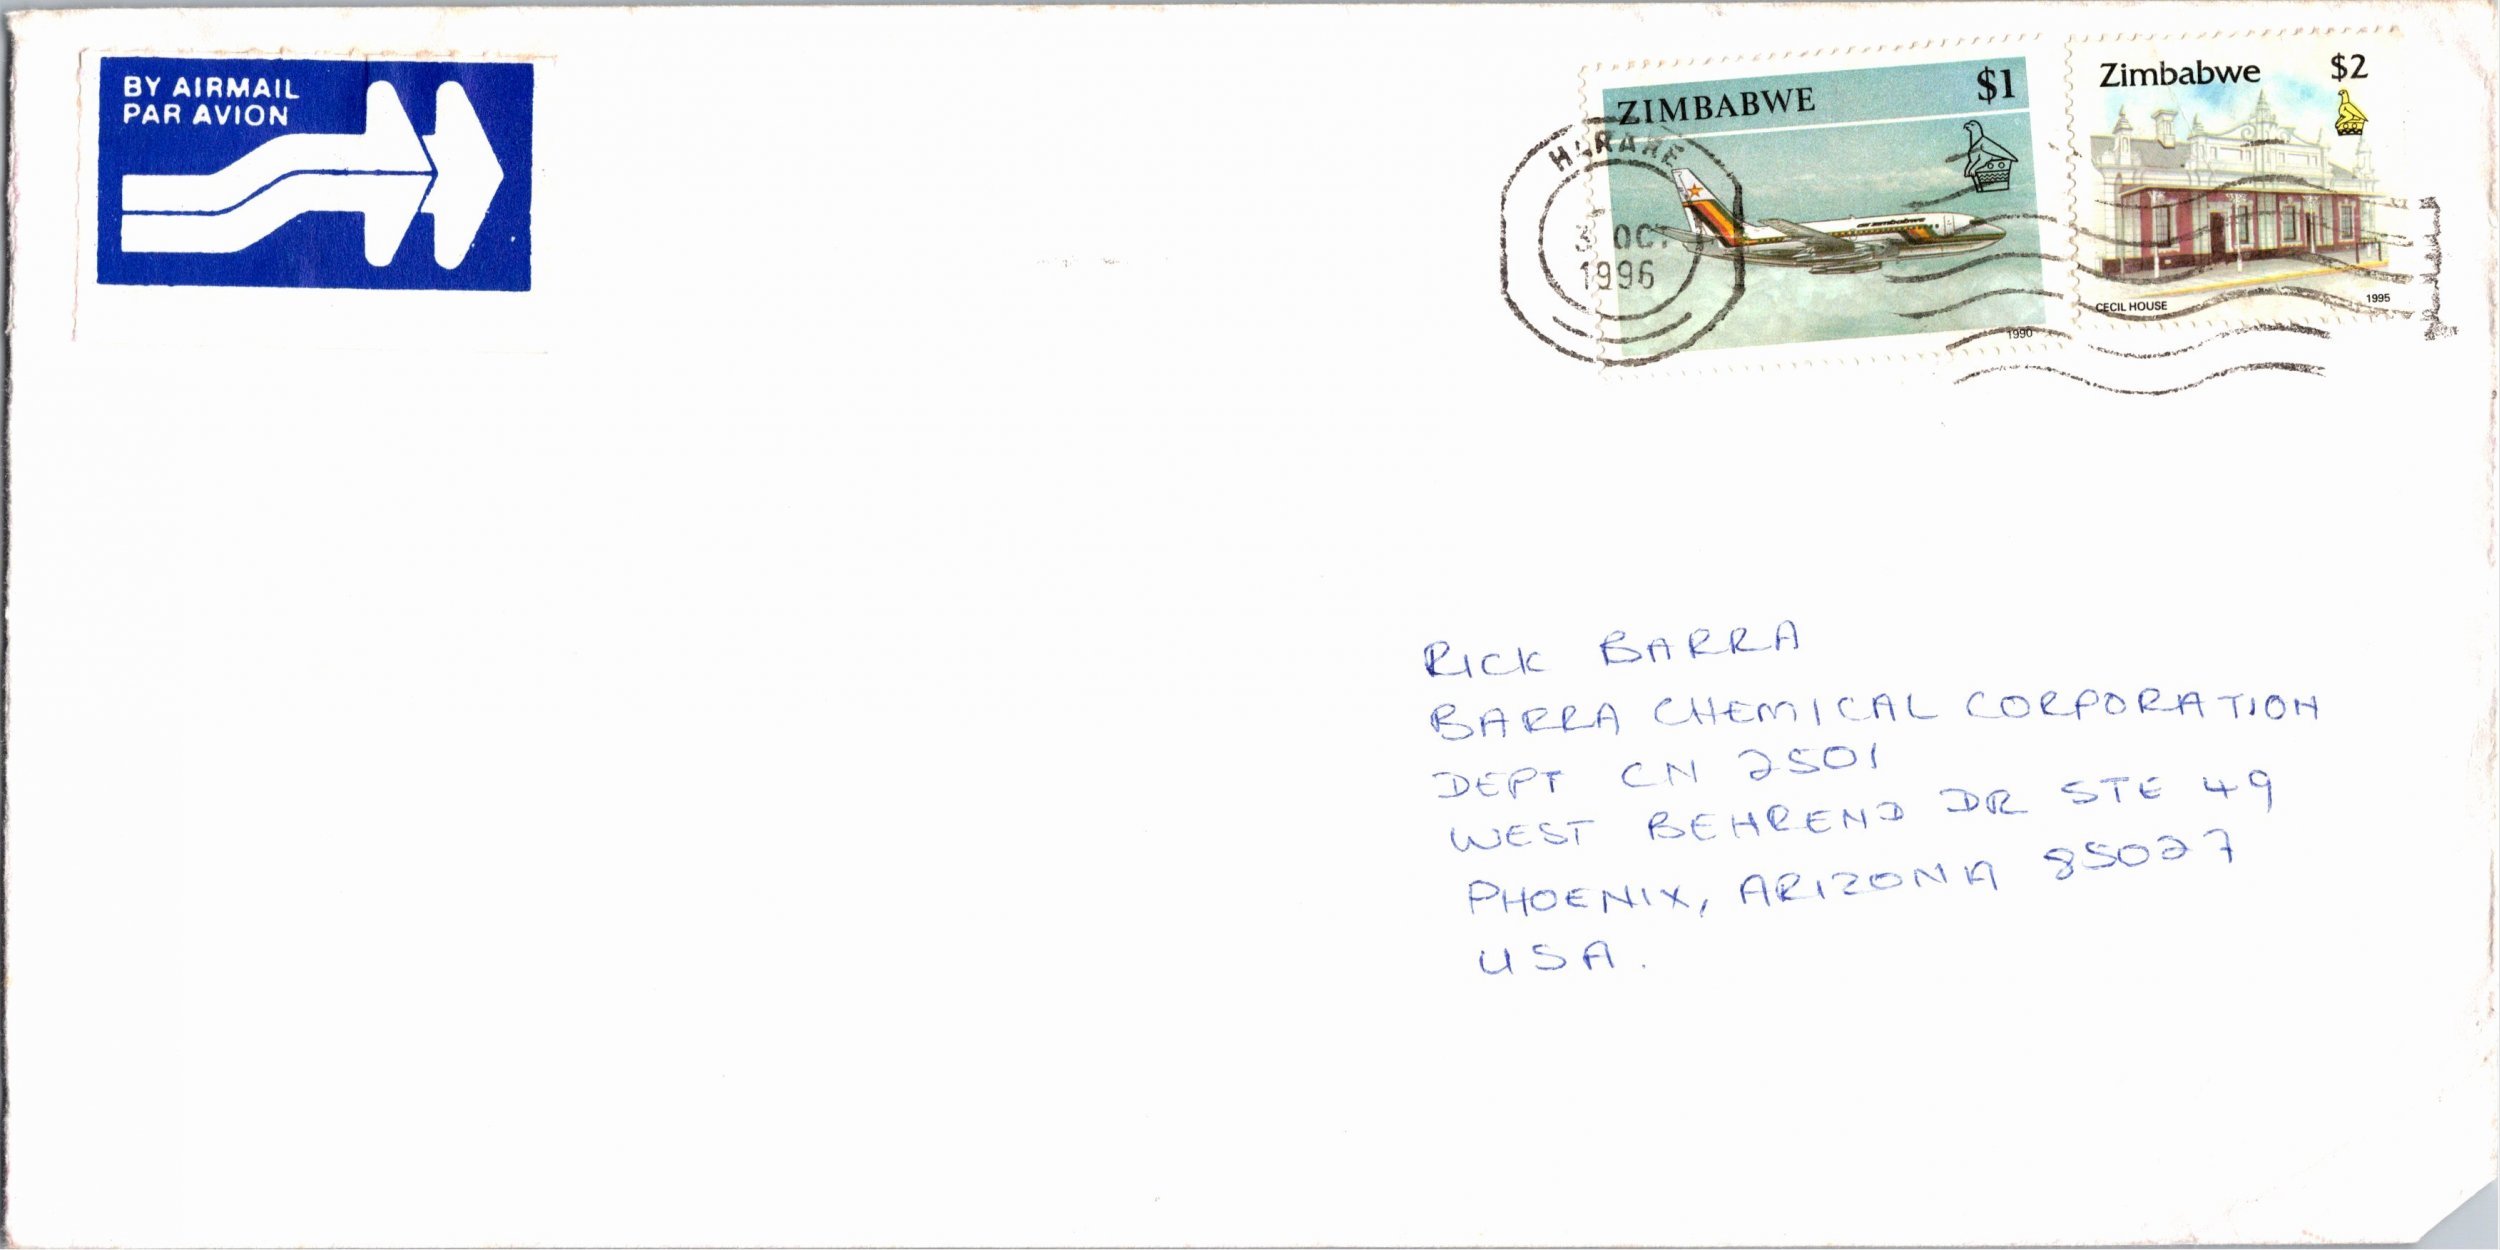 BY AIRMAIL
PAR AVION
ZIMBABWE $1
HARARE
OCT
1996
air zimbabwe
1990
Zimbabwe $2
CECIL HOUSE 1995
RICK BARRA
BARRA CHEMICAL CORPORATION
DEPT CN 2501
WEST BEHREND DR STE 49
PHOENIX, ARIZONA 85027
USA.